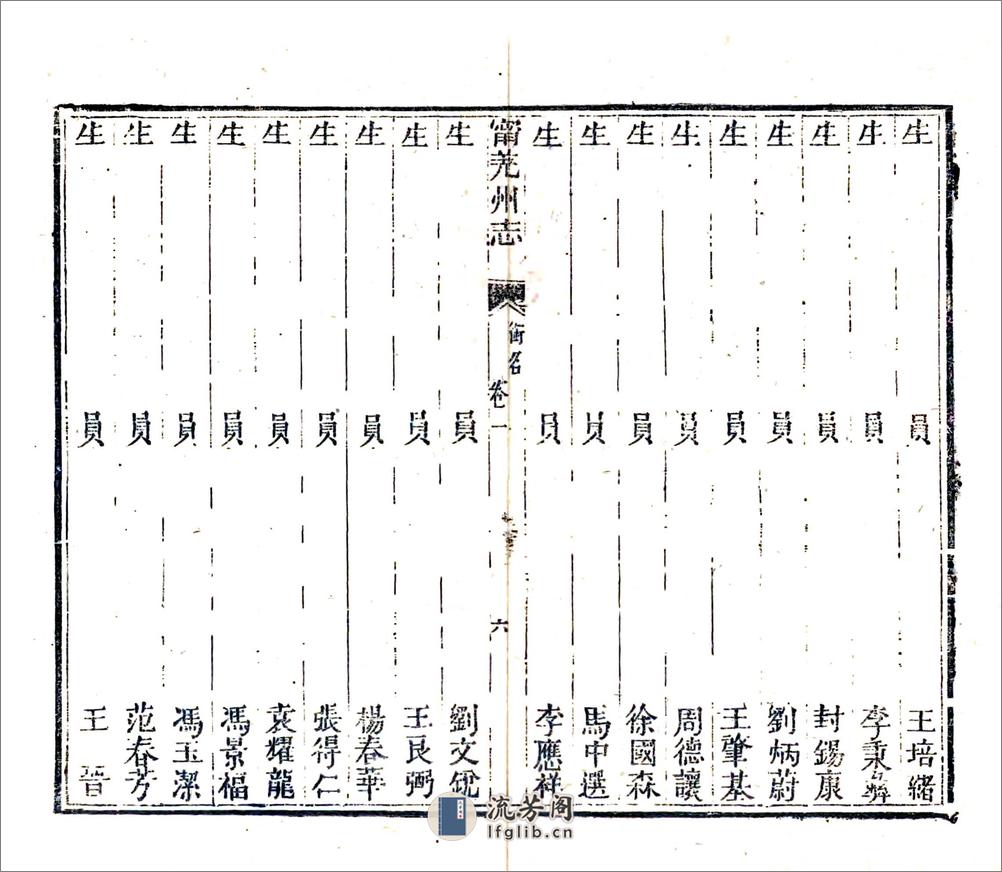 生員王培緒
生員李秉彝
生員封錫康
生員劉炳蔚
生員王肇基
生員周德讓
生員徐國森
生員馬中選
生員李應祥
甯羌州志 銜名 卷一 六
生員劉文銳
生員王良弼
生員楊春華
生員張得仁
生員袁耀龍
生員馮景福
生員馮玉潔
生員范春芳
生員王晉
流芳阁
lfglib.cn